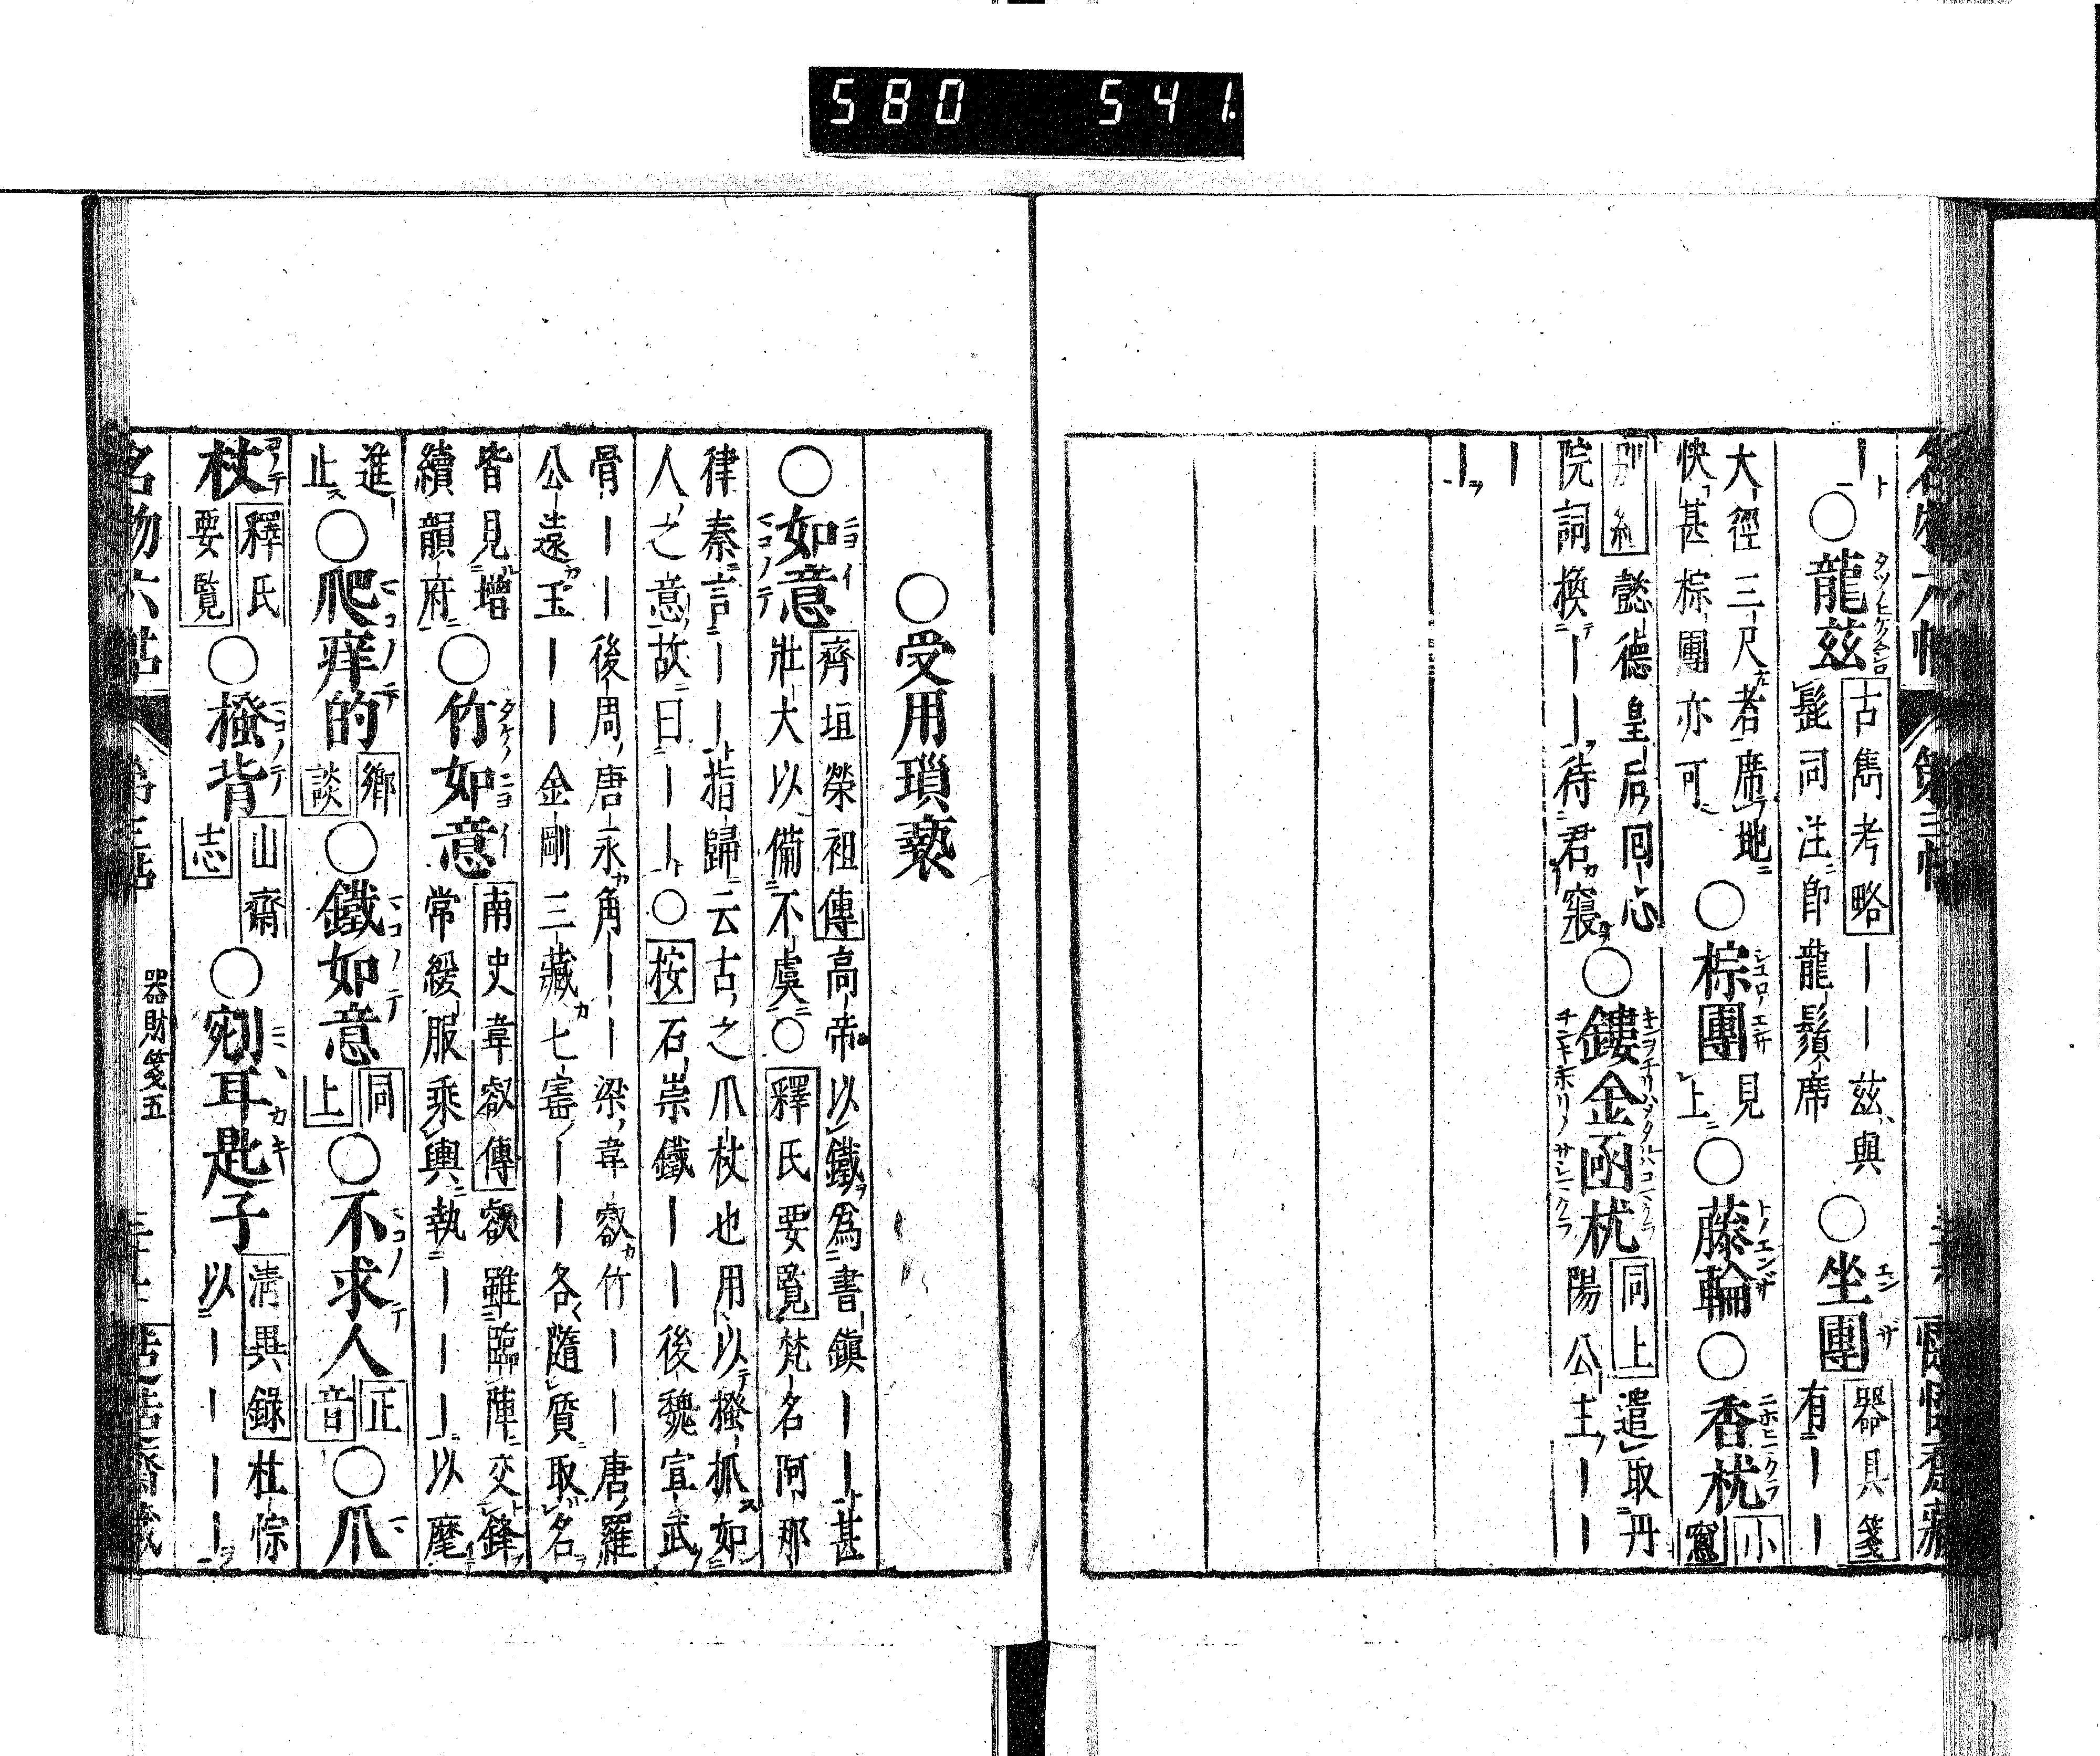 580 541.
｜○龍茲 古雋考略 ｜｜茲與
髢詞注即龍鬚席 ○坐團 器具箋 有｜｜
大徑三尺者席地
快甚棕團亦可 ○棕團 見上 ○藤輪 ○香枕 小窻
別紀 懿德皇后回心
院詞換｜｜待君寢 ○鏤金函枕 同上 遣取丹
陽公主｜｜
｜｜
○受用瑣褻
○如意 齊垣榮祖傳 高帝以鐵爲書鎮｜｜甚
壯大以備不虞○釋氏要覽 梵名阿那
律秦言｜｜指歸云古之爪杖也用以搔抓如
人之意故曰｜｜○按 石崇鐵｜｜後魏宣武
骨｜｜後周唐永角｜｜梁韋叡竹｜｜唐羅
公遠玉｜｜金剛三藏七寳｜｜各隨質取名
皆見增
續韻府 ○竹如意 南史韋叡傳 叡雖臨陣交鋒
常緩服乘輿執｜｜｜以麾
進
止 ○爬痒的 鄉談 ○鐵如意 同上 ○不求人 正音 ○爪
杖 釋氏要覽 ○搔背 山齋志 ○剜耳匙子 清異錄 杜悰
以｜｜｜｜
名物六帖 第三帖 器財箋五